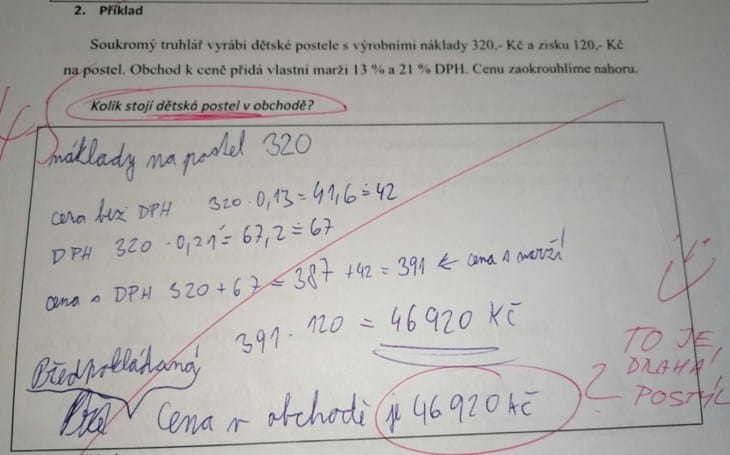 2. Příklad
Soukromý truhlář vyrábí dětské postele s výrobními náklady 320,- Kč a zisku 120,- Kč
na postel. Obchod k ceně přidá vlastní marži 13 % a 21 % DPH. Cenu zaokrouhlíme nahoru.
Kolik stojí dětská postel v obchodě?
náklady na postel 320
cena bez DPH 320 · 0,13 = 41,6 ≐ 42
DPH 320 · 0,21 = 67,2 ≐ 67
cena s DPH 320 + 67 = 387 + 42 = 391 ← cena s marží
391 · 120 = 46920 Kč
Předpokládaná
Cena v obchodě je 46920 Kč
?
TO JE
DRAHÁ
POSTÝL